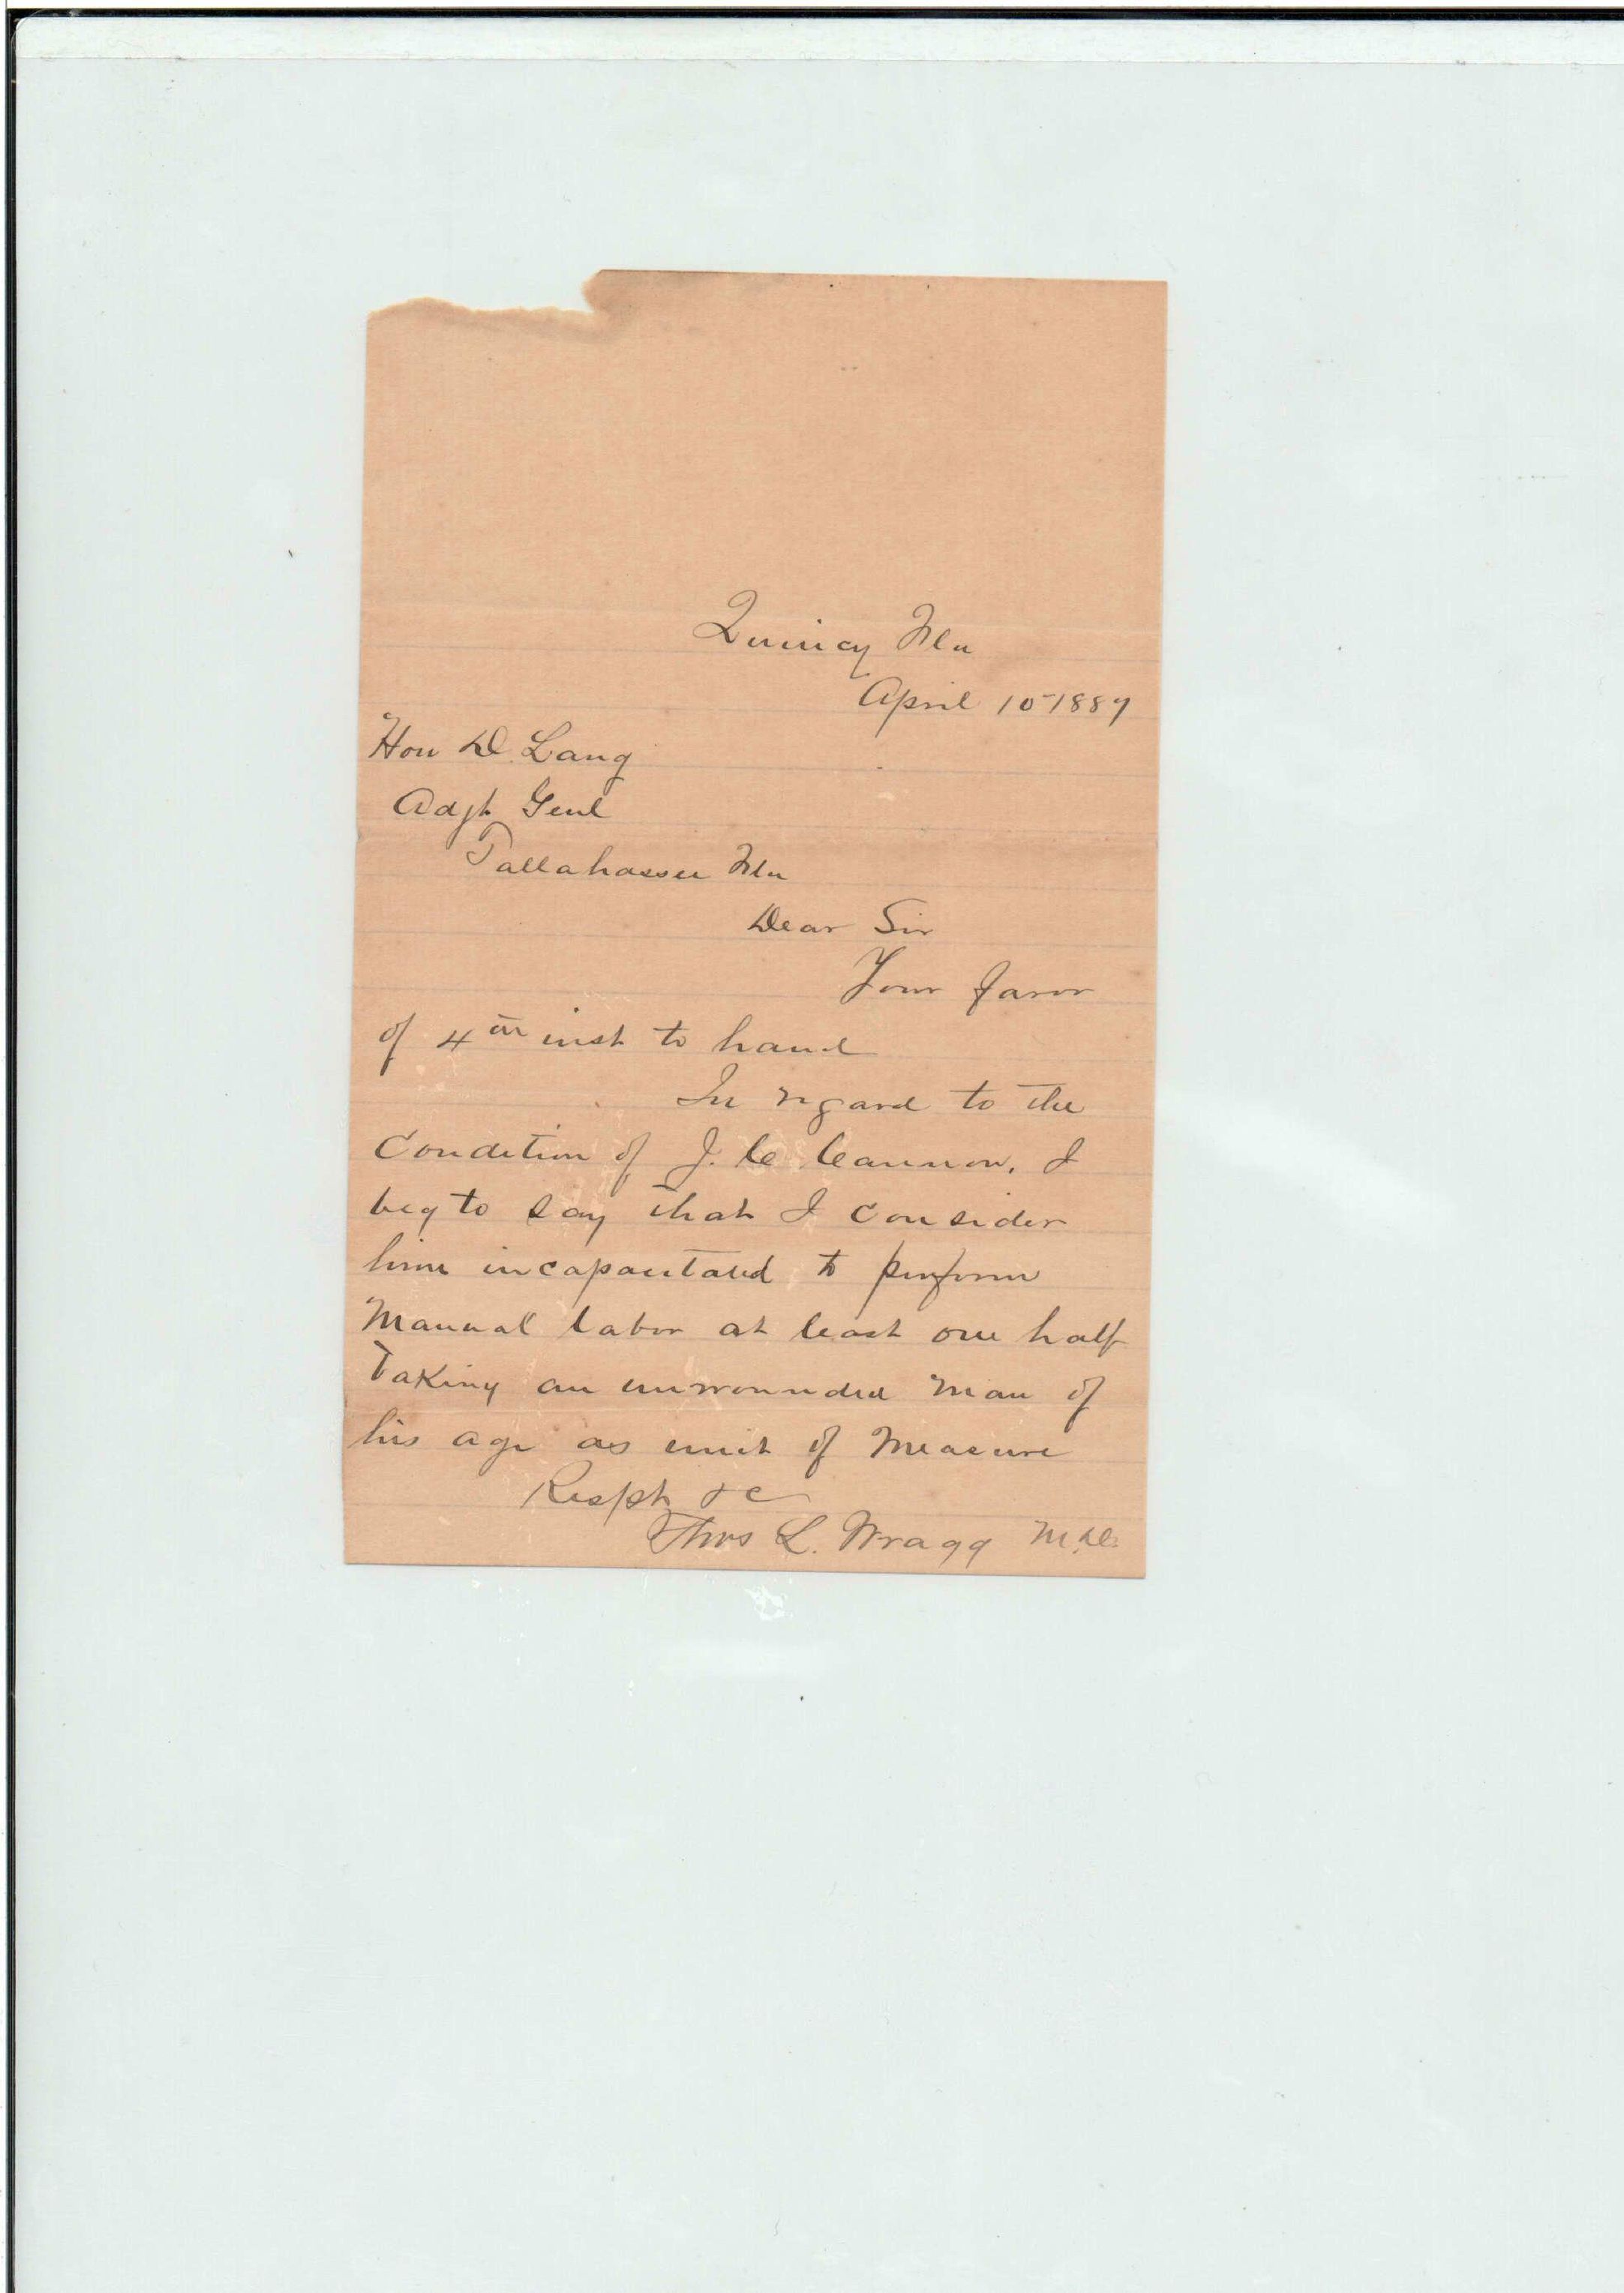 Quincy Fla
April 10-1889
Hon D. Lang
Adjt Genl
Tallahassee Fla
Dear Sir
Your favor
of 4th inst to hand
In regard to the
Condition of J. C Cannon, I
beg to say that I consider
him incapacitated to perform
Manual labor at least one half
Taking an unwounded man of
his age as unit of Measure
Respt &c
Thos L. Wragg M.D.